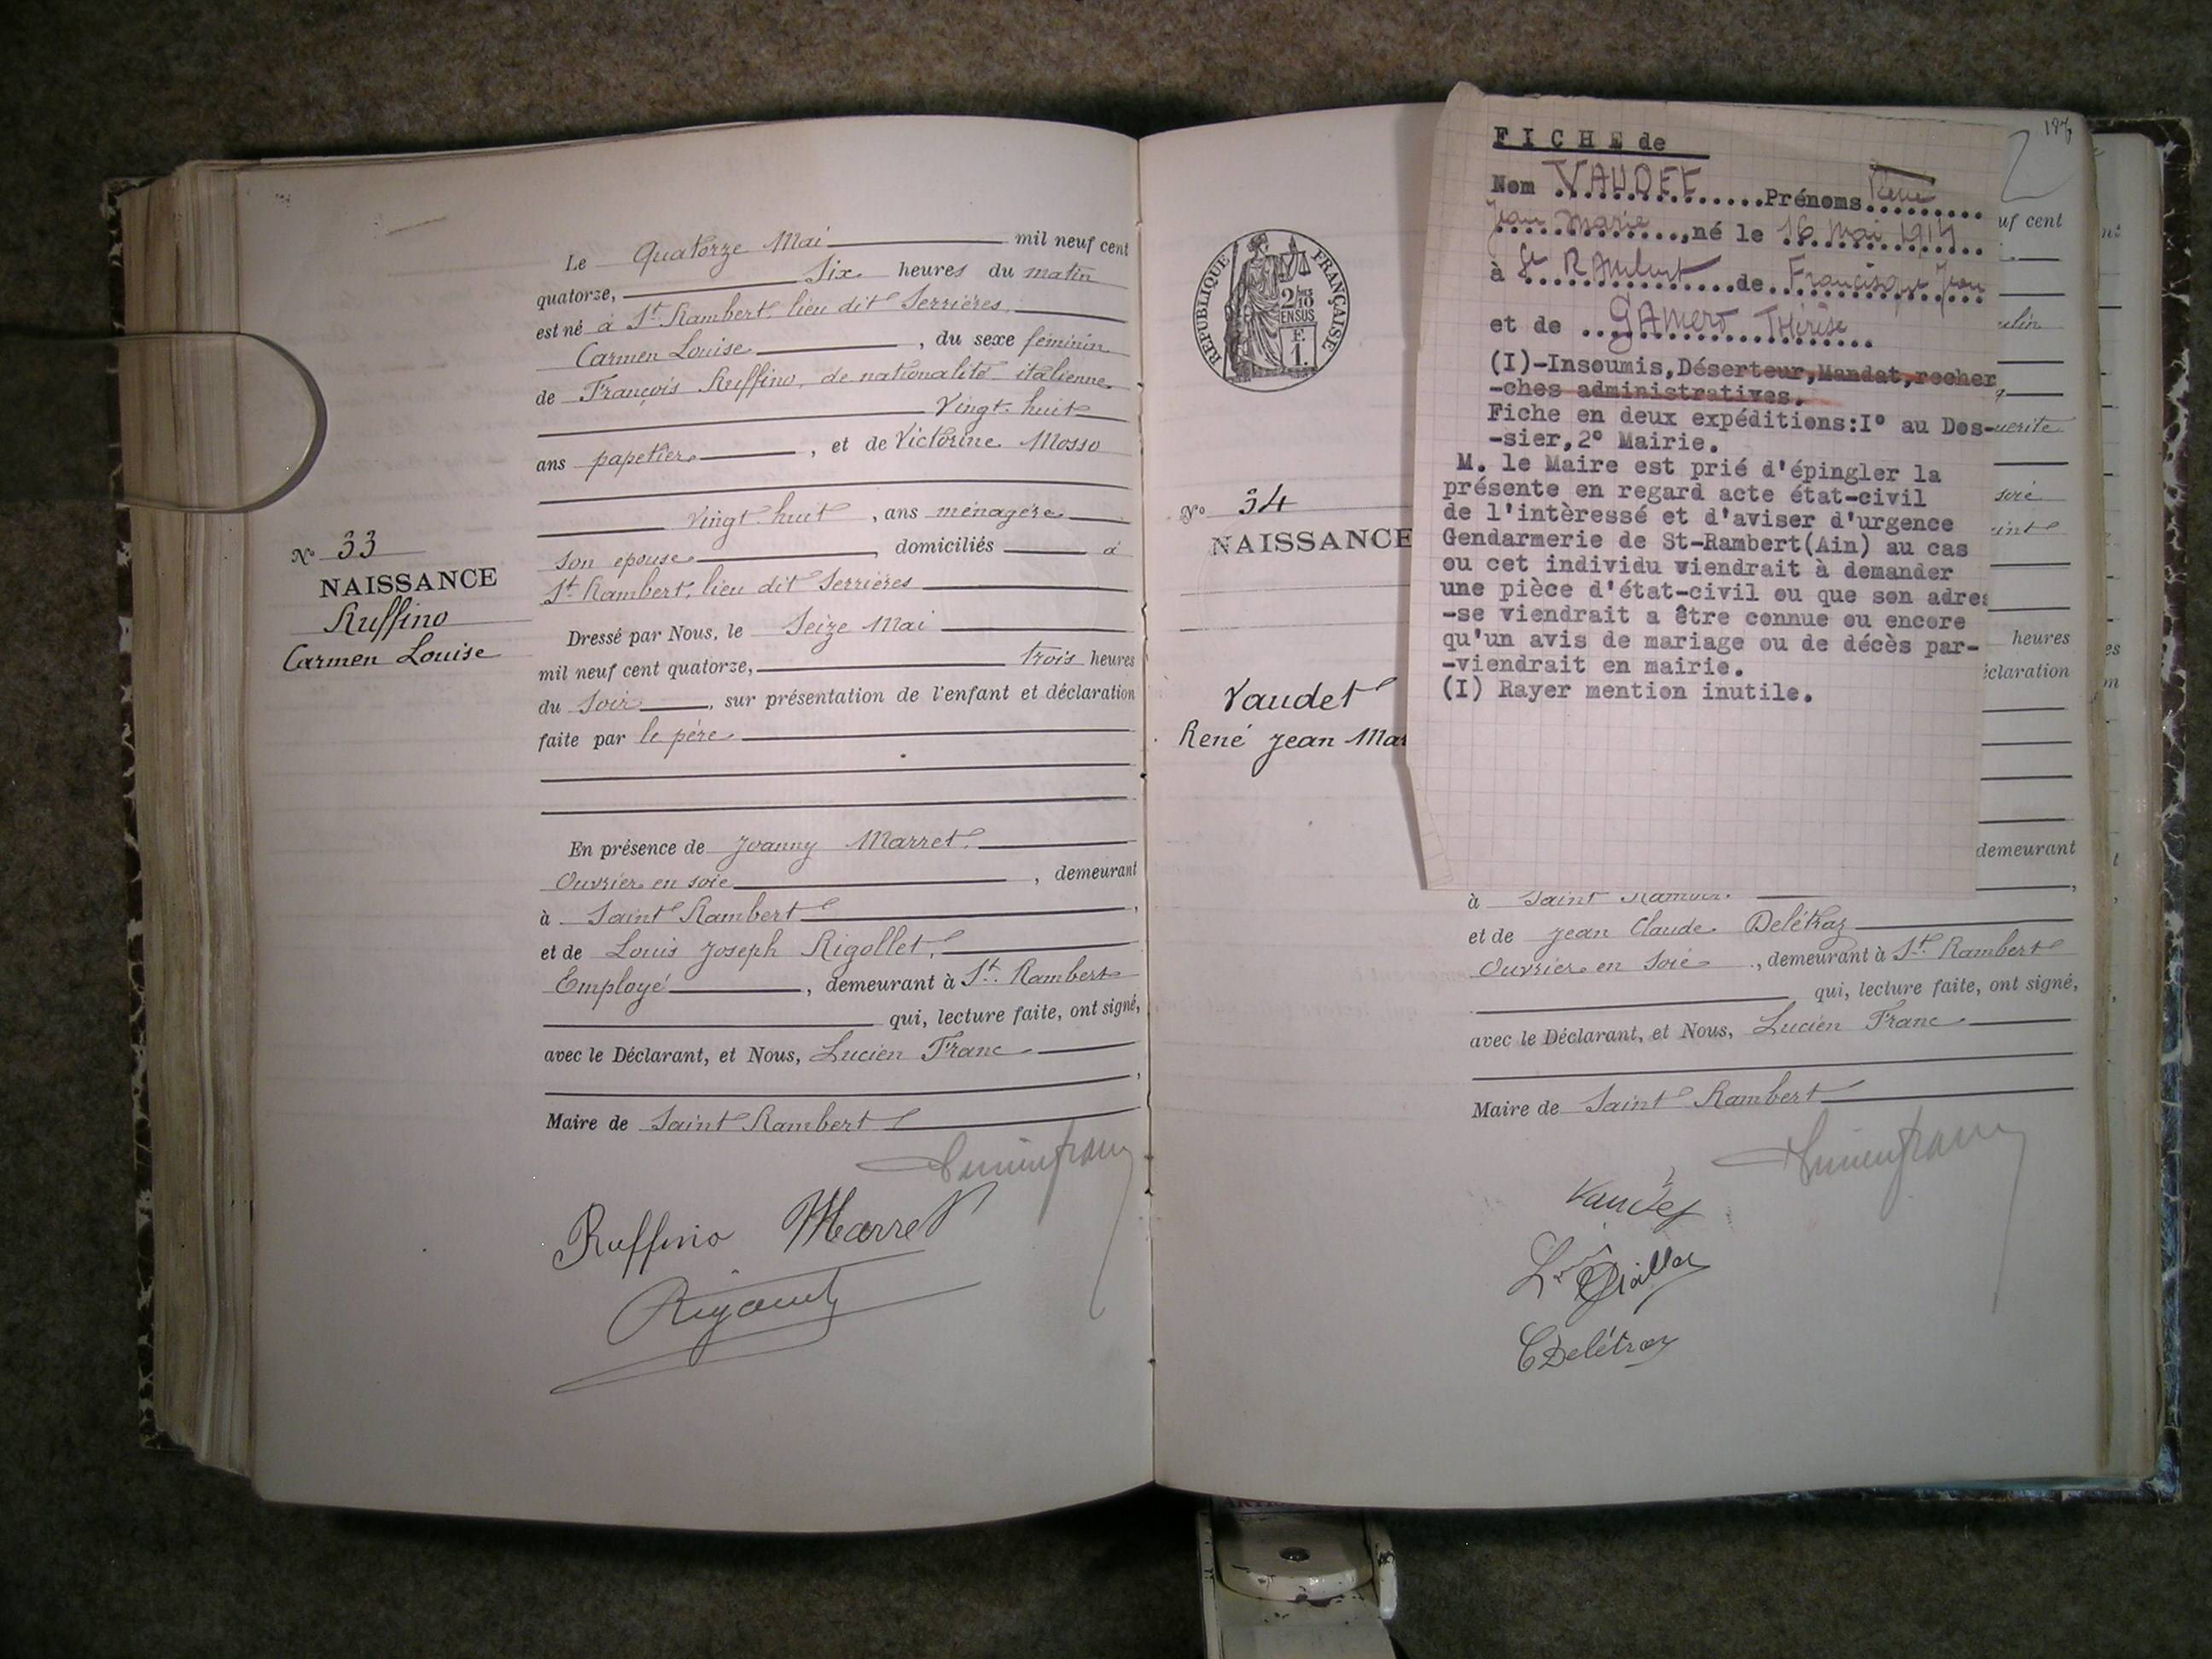 Le Quatorze Mai mil neuf cent
quatorze, Six heures du matin
est né à St. Rambert, lieu dit Serrières,
Carmen Louise, du sexe féminin
de François Ruffino, de nationalité italienne
Vingt-huit
ans papetier, et de Victorine Mosso
vingt huit, ans ménagère
son épouse, domiciliés à
St. Rambert, lieu dit Serrières
Dressé par Nous, le Seize Mai
mil neuf cent quatorze, trois heures
du Soir, sur présentation de l'enfant et déclaration
faite par le père
En présence de Joanny Marret,
Ouvrier en soie, demeurant
à Saint Rambert,
et de Louis Joseph Rigollet,
Employé, demeurant à St. Rambert
qui, lecture faite, ont signé,
avec le Déclarant, et Nous, Lucien Franc
,
Maire de Saint Rambert
Ruffino Marret
No 33
NAISSANCE
Ruffino
Carmen Louise
RÉPUBLIQUE FRANÇAISE
2/10
EN SUS
F.
1.
No 34
NAISSANCE
Vaudet
René Jean Mar
FICHE de
Nom VAUDET Prénoms René
Jean Marie, né le 16 mai 1914
à St Rambert de Francisque Jean
et de GAMERO Thérèse
(I)-Insoumis, Déserteur, Mandat, recher
-ches administratives.
Fiche en deux expéditions: I° au Dos-
-sier, 2° Mairie.
M. le Maire est prié d'épingler la
présente en regard acte état-civil
de l'intèressé et d'aviser d'urgence
Gendarmerie de St-Rambert(Ain) au cas
ou cet individu viendrait à demander
une pièce d'état-civil ou que son adres
-se viendrait a être connue ou encore
qu'un avis de mariage ou de décès par-
-viendrait en mairie.
(I) Rayer mention inutile.
uf cent
heures
éclaration
demeurant
à Saint Rambert
et de Jean Claude Delétraz
Ouvrier en Soie, demeurant à St. Rambert
qui, lecture faite, ont signé,
avec le Déclarant, et Nous, Lucien Franc
Maire de Saint Rambert
Vaudet
CDelétraz